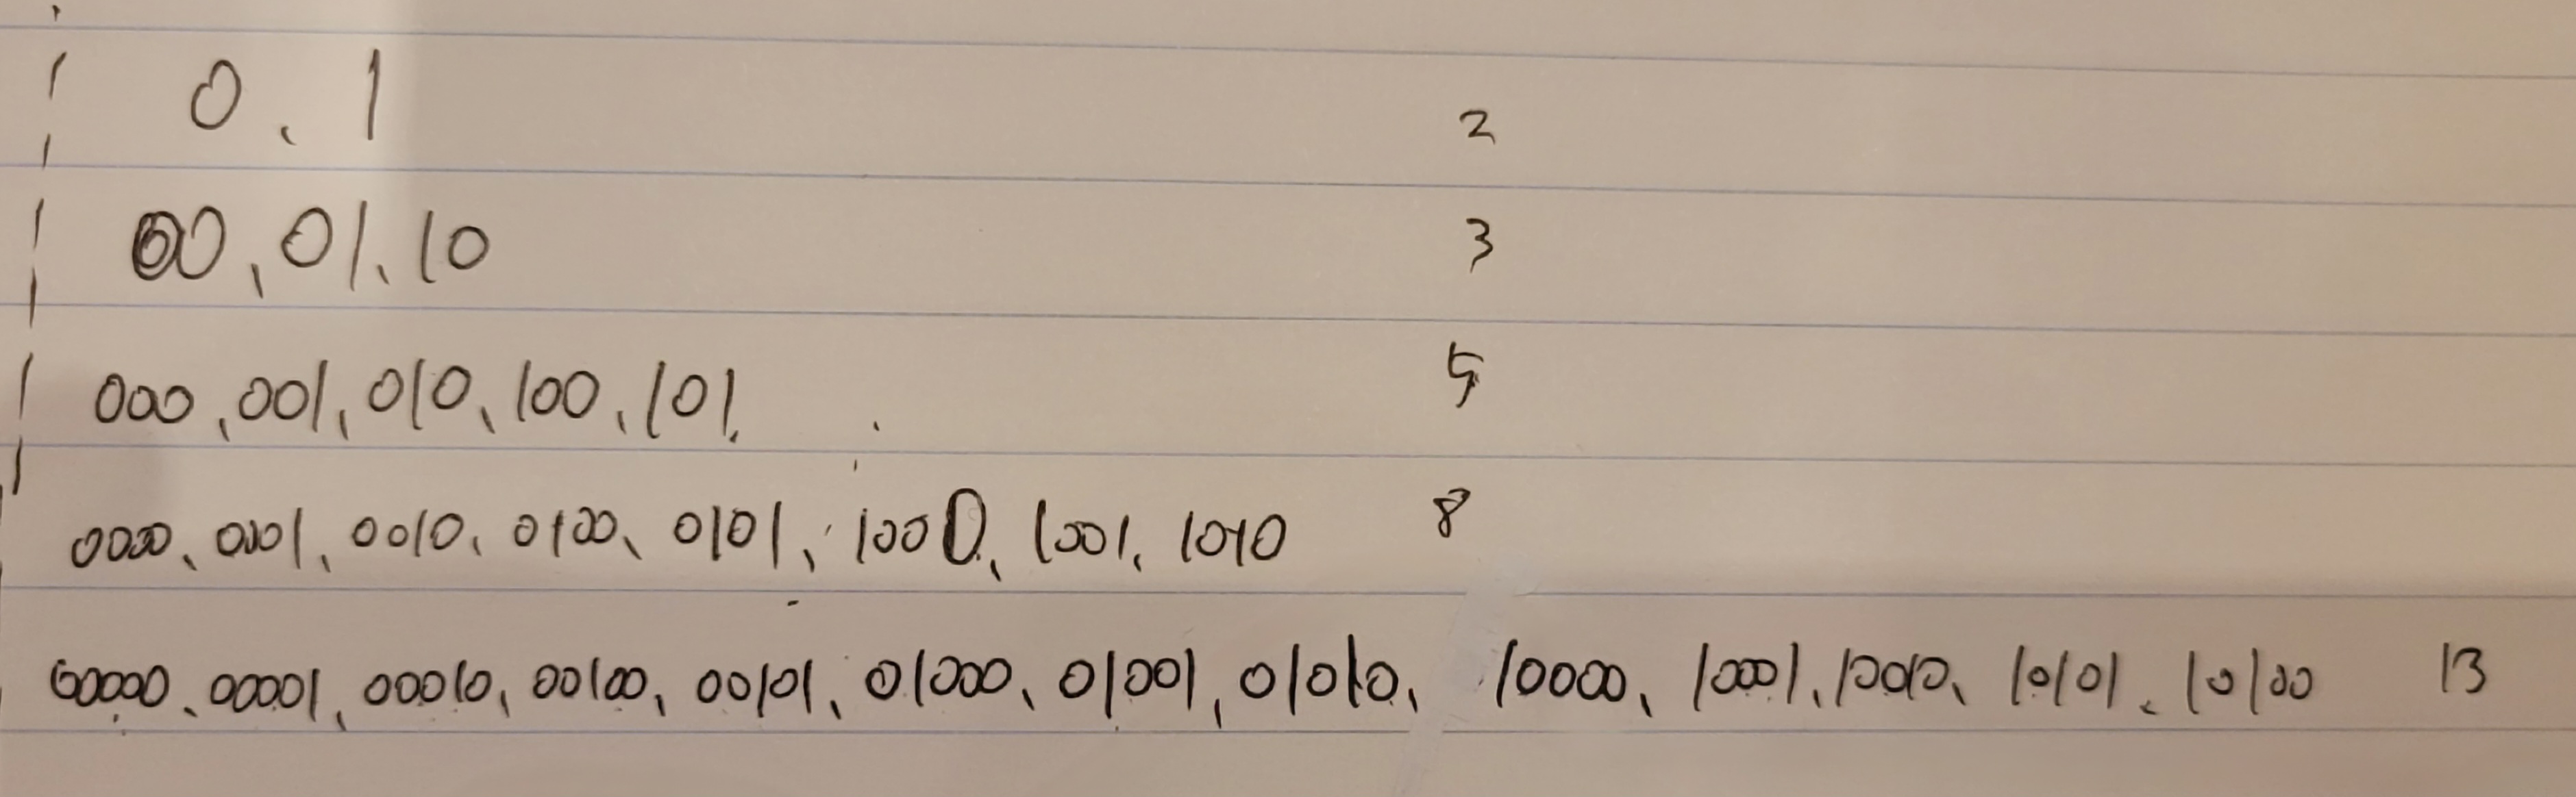 0, 1 2
00, 01, 10 3
000, 001, 010, 100, 101, 5
0000, 0001, 0010, 0100, 0101, 1000, 1001, 1010 8
00000, 00001, 00010, 00100, 00101, 01000, 01001, 01010, 10000, 10001, 10010, 10101, 10100 13